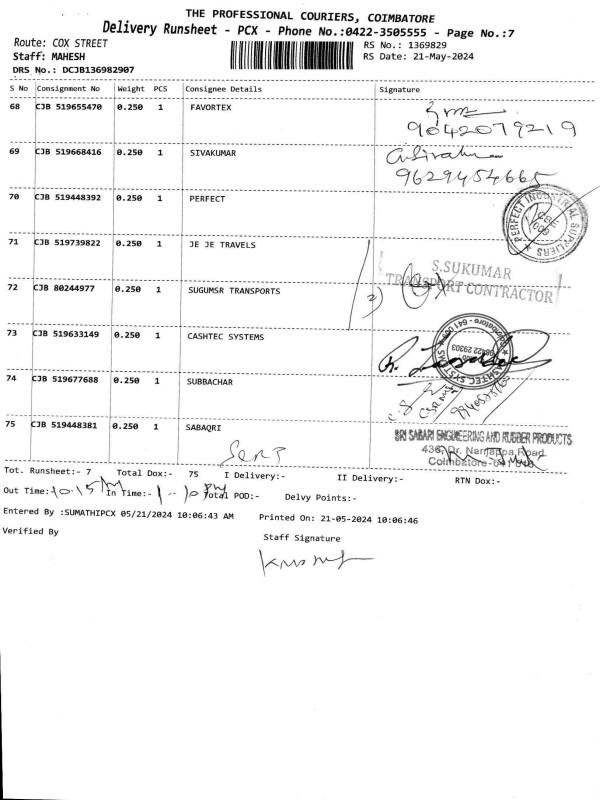 THE PROFESSIONAL COURIERS, COIMBATORE
Delivery Runsheet - PCX - Phone No.:0422-3505555 - Page No.:7
Route: COX STREET
RS No.: 1369829
Staff: MAHESH
RS Date: 21-May-2024
DRS No.: DCJB136982907
S No Consignment No Weight PCS Consignee Details Signature
68 CJB 519655470 0.250 1 FAVORTEX
9042079219
69 CJB 519668416 0.250 1 SIVAKUMAR
9629454665
70 CJB 519448392 0.250 1 PERFECT
PERFECT INDUSTRIAL SUPPLIERS
71 CJB 519739822 0.250 1 JE JE TRAVELS
S.SUKUMAR
TRANSPORT CONTRACTOR
72 CJB 80244977 0.250 1 SUGUMSR TRANSPORTS
2)
73 CJB 519633149 0.250 1 CASHTEC SYSTEMS
CASHTEC SYSTEMS
74 CJB 519677688 0.250 1 SUBBACHAR
75 CJB 519448381 0.250 1 SABAQRI
SRI SABARI ENGINEERING AND RUBBER PRODUCTS
436, Dr. Nanjappa Road
Coimbatore-641
Tot. Runsheet:- 7 Total Dox:- 75 I Delivery:- II Delivery:- RTN Dox:-
Out Time:- 10.15 In Time:- 1-10 PM Total POD:- Delvy Points:-
Entered By :SUMATHIPCX 05/21/2024 10:06:43 AM Printed On: 21-05-2024 10:06:46
Verified By
Staff Signature